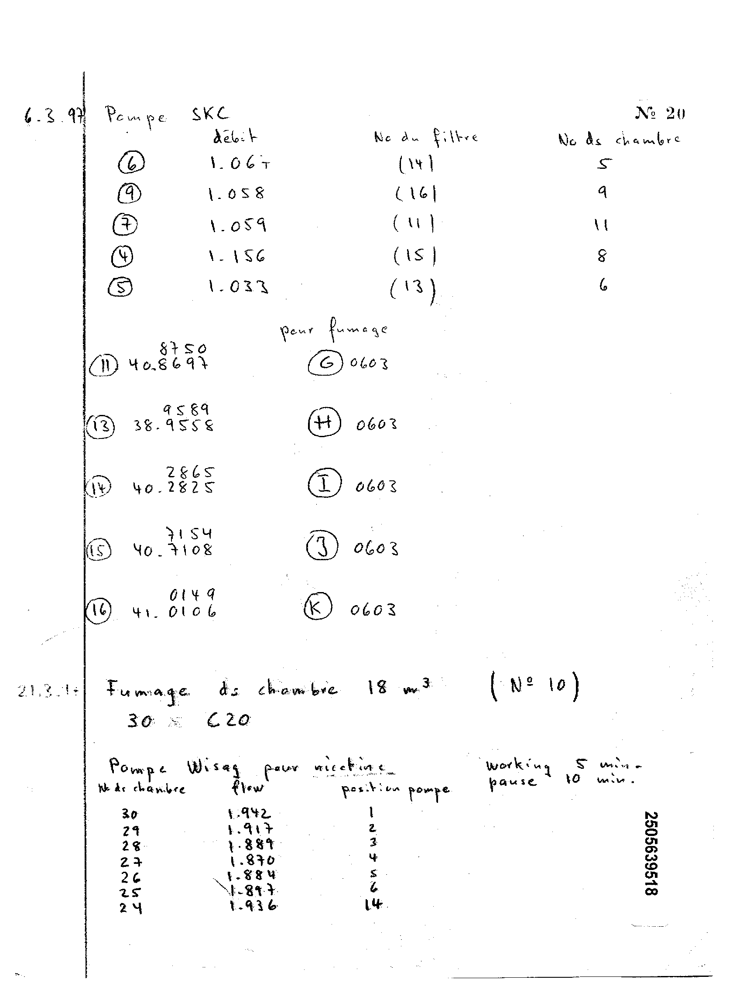 6.3.97 Pompe SKC Nº 20
débit No du filtre No ds chambre
6 1.067 (14) 5
9 1.058 (16) 9
7 1.059 (11) 11
4 1.156 (15) 8
5 1.033 (13) 6
pour fumage
8750
11 40.8697 G 0603
9589
13 38.9558 H 0603
2865
14 40.2825 I 0603
7154
15 40.7108 J 0603
0149
16 41.0106 K 0603
21.3. Fumage ds chambre 18 m³ (Nº 10)
30 × C20
Pompe Wisag pour nicotine working 5 min.
No de chambre flow position pompe pause 10 min.
30 1.942 1
29 1.917 2
28 1.889 3
27 1.870 4
26 1.884 5
25 1.897 6
24 1.936 14
2505639518